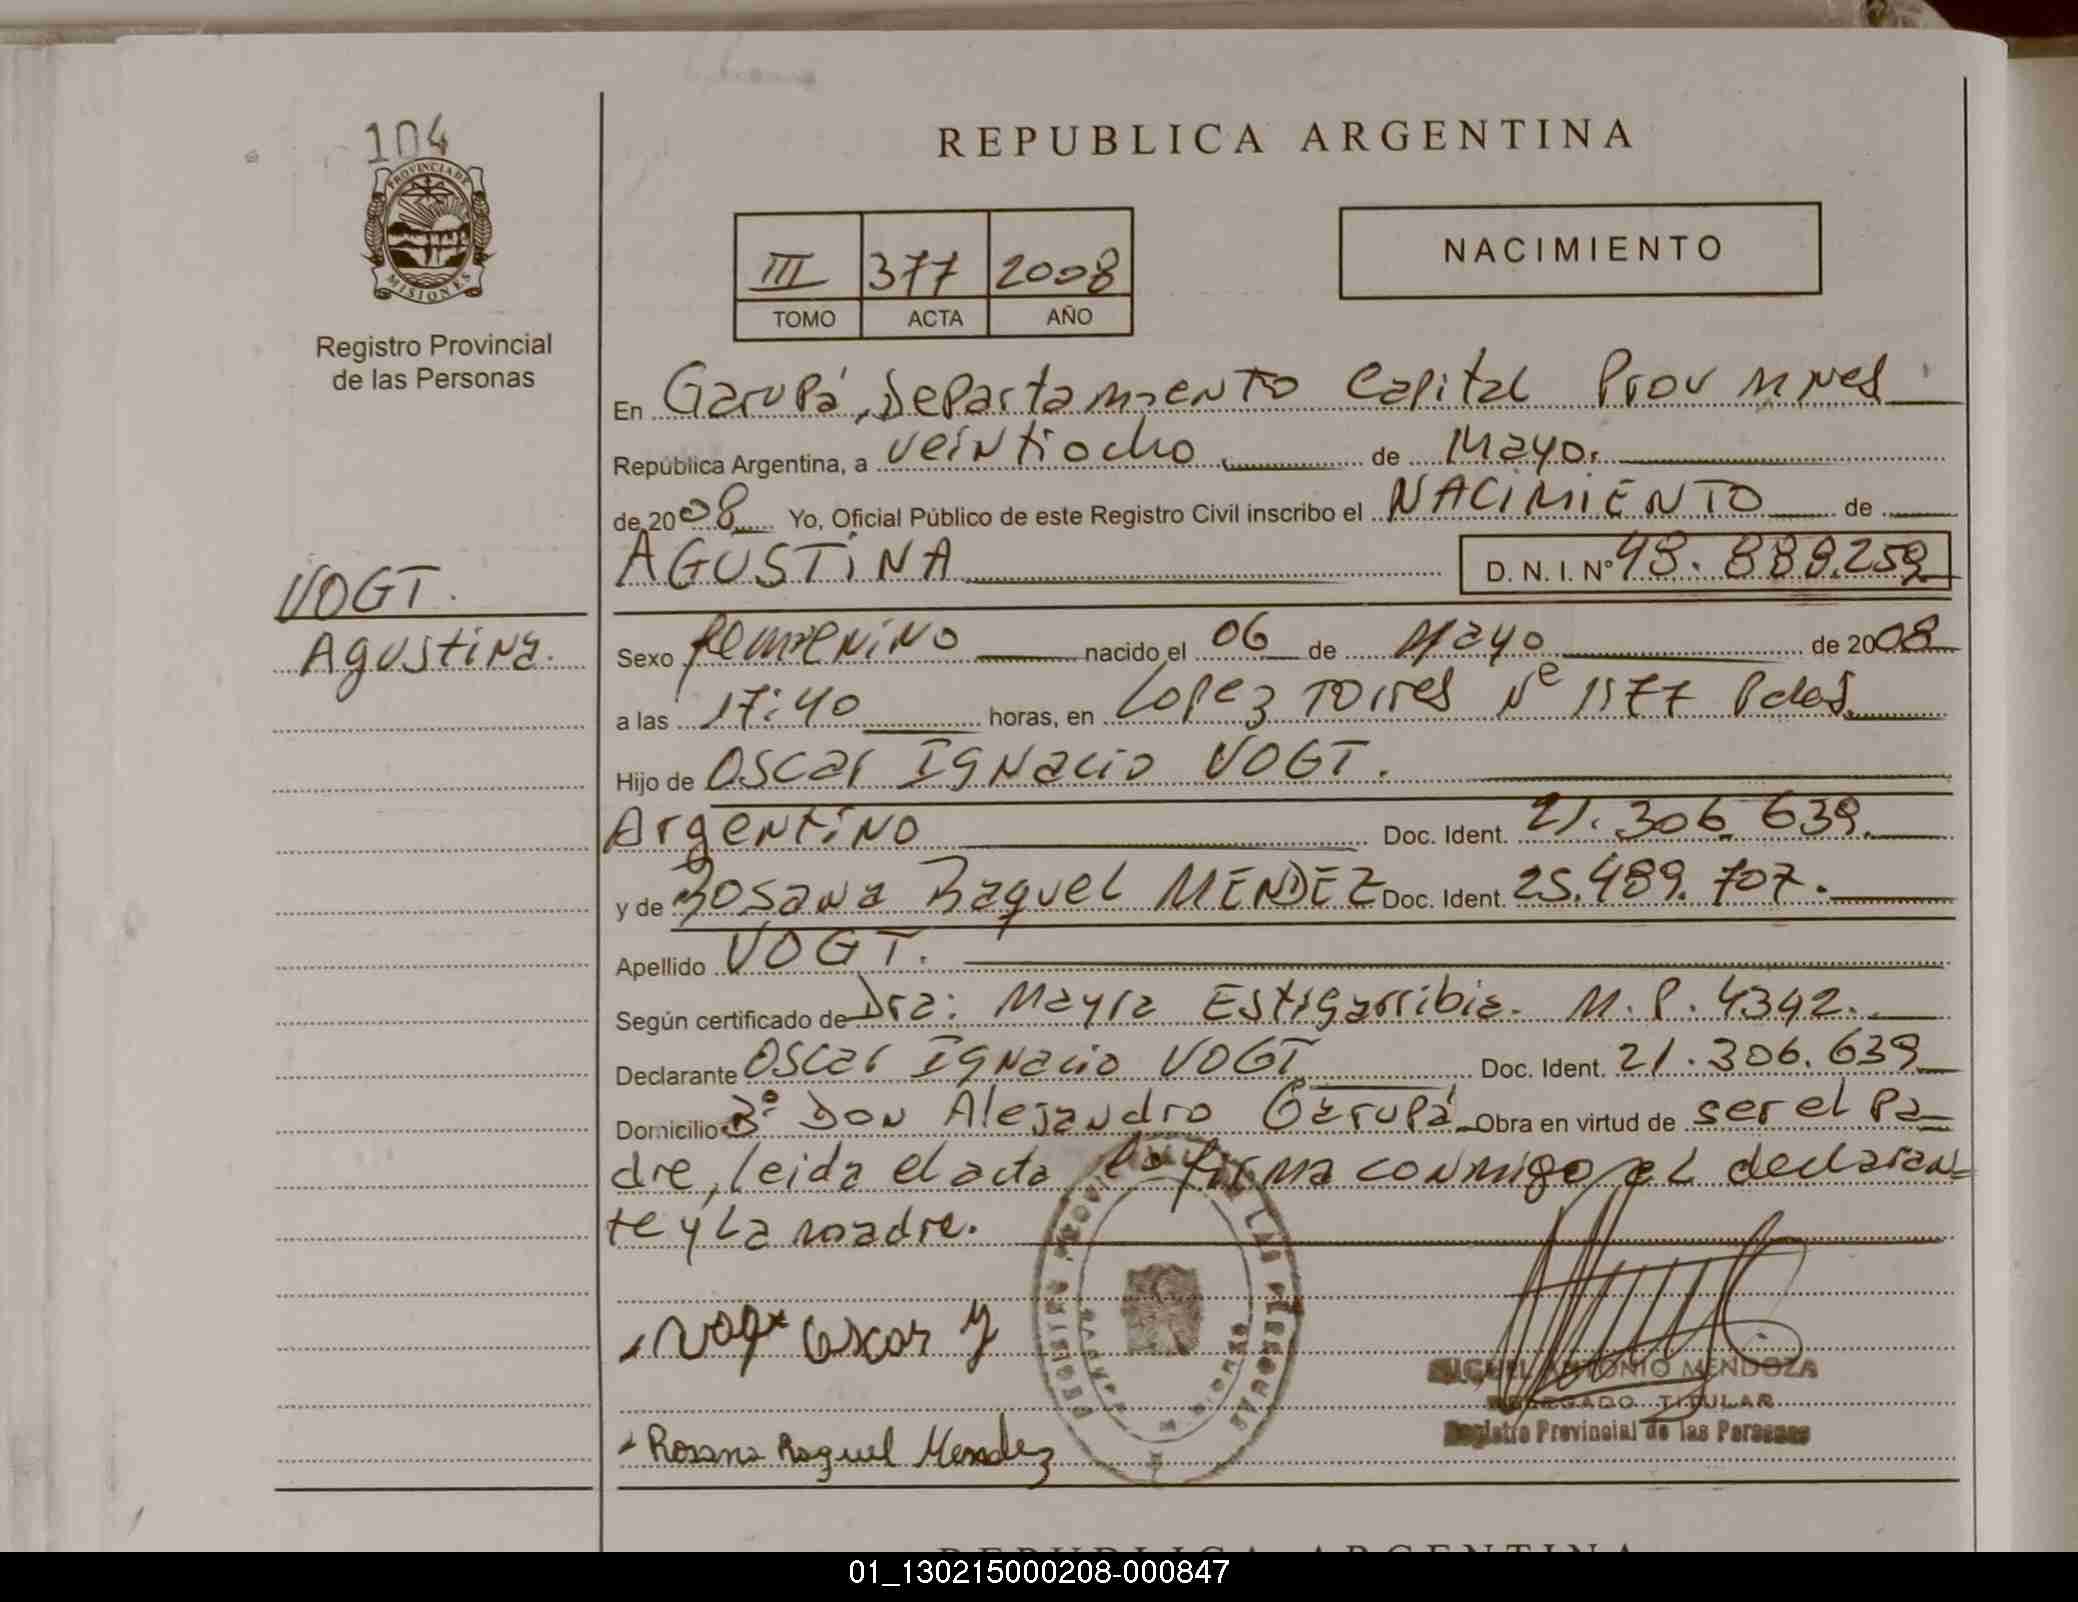 104
PROVINCIA DE
MISIONES
Registro Provincial
de las Personas
VOGT.
Agustina.
REPUBLICA ARGENTINA
III 377 2008
TOMO ACTA AÑO
NACIMIENTO
En Garupá, Departamento Capital Prov Mnes
República Argentina, a veintiocho de Mayo.
de 2008 Yo, Oficial Público de este Registro Civil inscribo el NACIMIENTO de
AGUSTINA D. N. I. Nº 48.888.259
Sexo femenino nacido el 06 de Mayo de 2008
a las 17:40 horas, en Lopez Torres Nº 1177 Pdas.
Hijo de Oscar Ignacio VOGT.
Argentino Doc. Ident. 21.306.639.
y de Rosana Raquel MENDEZ Doc. Ident. 25.489.707.
Apellido VOGT.
Según certificado de Dra: Mayra Estigarribia. M.P. 4342.
Declarante Oscar Ignacio VOGT Doc. Ident. 21.306.639
Domicilio Bº Don Alejandro Garupá Obra en virtud de ser el Pa
dre, leida el acta la firma conmigo el declaran=
te y La madre.
Vogt Oscar Y
MIGUEL ANTONIO MENDOZA
DELEGADO TITULAR
Registro Provincial de las Personas
Rosana Raquel Mendez
REPUBLICA ARGENTINA
01_130215000208-000847